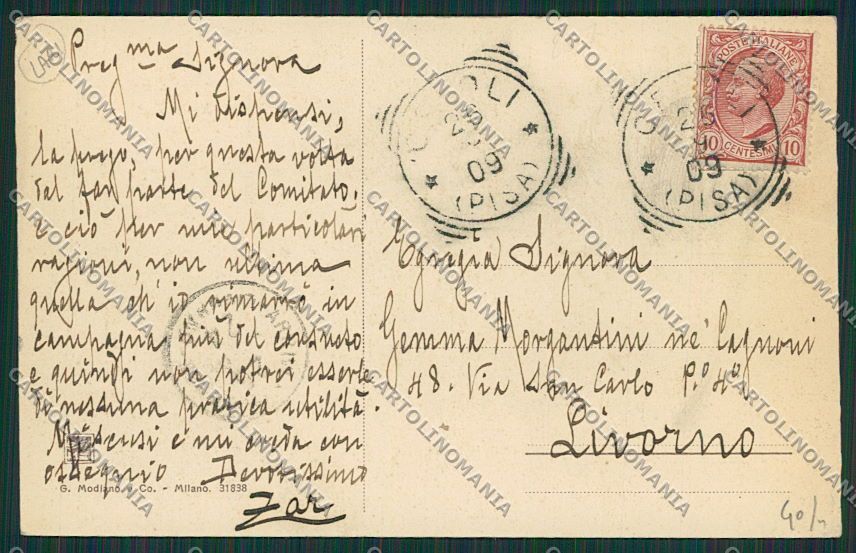 Preg.ma Signora
Mi dispensi,
la prego, per questa volta
dal far parte del Comitato.
e ciò per mie particolari
ragioni, non ultima
quella ch'io rimarrò in
campagna più del consueto
e quindi non potrei esserle
di nessuna pratica utilità.
Mi scusi e mi creda con
ossequio Devotissimo
Zar
G. Modiano e Co. - Milano. 31838
POSTE ITALIANE
10 CENTESIMI 10
09
(PISA)
09
(PISA)
Egregia Signora
Gemma Morgantini ne' Cagnoni
48. Via San Carlo P.o 4o
Livorno
40/
CARTOLINOMANIA